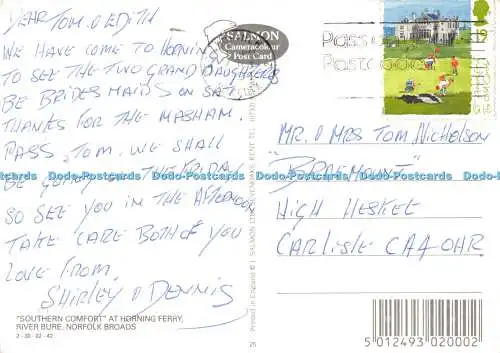 DEAR TOM & EDITH
WE HAVE COME TO HORNING
TO SEE THE TWO GRAND DAUGHTERS
BE BRIDES MAIDS ON SAT.
THANKS FOR THE MASHAM.
PASS, TOM. WE SHALL
BE GOING THE FRIDAY
SO SEE YOU IN THE AFTERNOON
TAKE CARE BOTH OF YOU
LOVE FROM.
SHIRLEY & DENNIS
"SOUTHERN COMFORT" AT HORNING FERRY,
RIVER BURE, NORFOLK BROADS
2-30-02-42
SALMON
Cameracolour
Post Card
Printed in England ©
25
Pass
Postcode
MR. & MRS TOM NICHOLSON
"BRAEMOUNT"
HIGH HESKET
CARLISLE CA4 0HR.
5 012493 020002
Dodo-Postcards Dodo-Postcards Dodo-Postcards Dodo-Postcards Dodo-Postcards